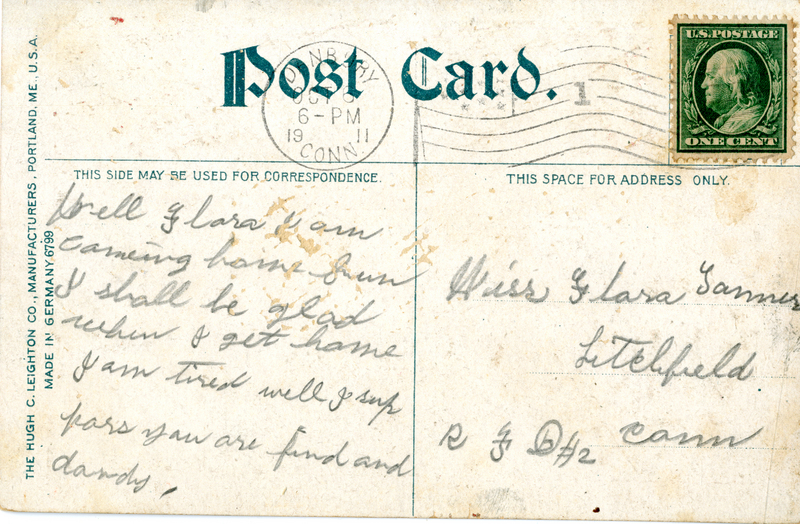 Post Card.
DANBURY
OCT 6
6-PM
1911
CONN.
1
U.S. POSTAGE
ONE CENT
THIS SIDE MAY BE USED FOR CORRESPONDENCE.
THIS SPACE FOR ADDRESS ONLY.
THE HUGH C. LEIGHTON CO., MANUFACTURERS, PORTLAND, ME., U.S.A.
MADE IN GERMANY. 6799
Well Flora I am
comeing home
I shall be glad
when I get home
I am tired well I sup
pors you are find and
dandy,
Miss Flora Tanner
Litchfield
R F D #2 Conn